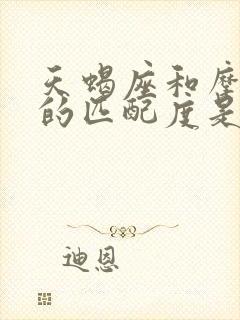 天蝎座和
的匹配度是
迪恩